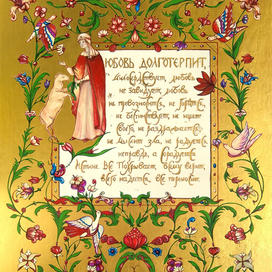 ЛЮБОВЬ ДОЛГОТЕРПИТ,
милосердствует, любовь
не завидует, любовь
не превозносится, не гордится,
не бесчинствует, не ищет
своего, не раздражается,
не мыслит зла, не радуется
неправде, а сорадуется
истине, все покрывает, всему верит,
всего надеется, все переносит.